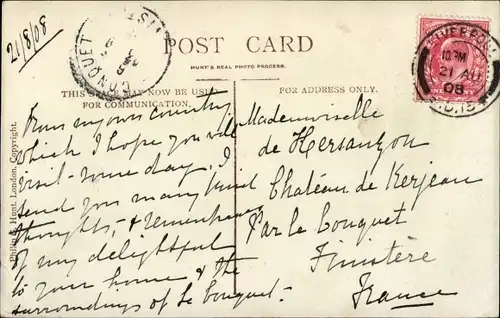 21/8/08
POST CARD
HUNT'S REAL PHOTO PROCESS.
THIS SPACE MAY NOW BE USED
FOR COMMUNICATION.
From my own country
which I hope you will
visit some day. I
send you many kind
thoughts, &
of my delightful
to your home & the
surroundings of Le Conquet.
Philip & Hunt, London, Copyright.
FOR ADDRESS ONLY.
Mademoiselle
de Kersauzon
Château de Kerjean
Par le Conquet
Finistère
France
LIVERPOOL
10 PM
21 AU
08